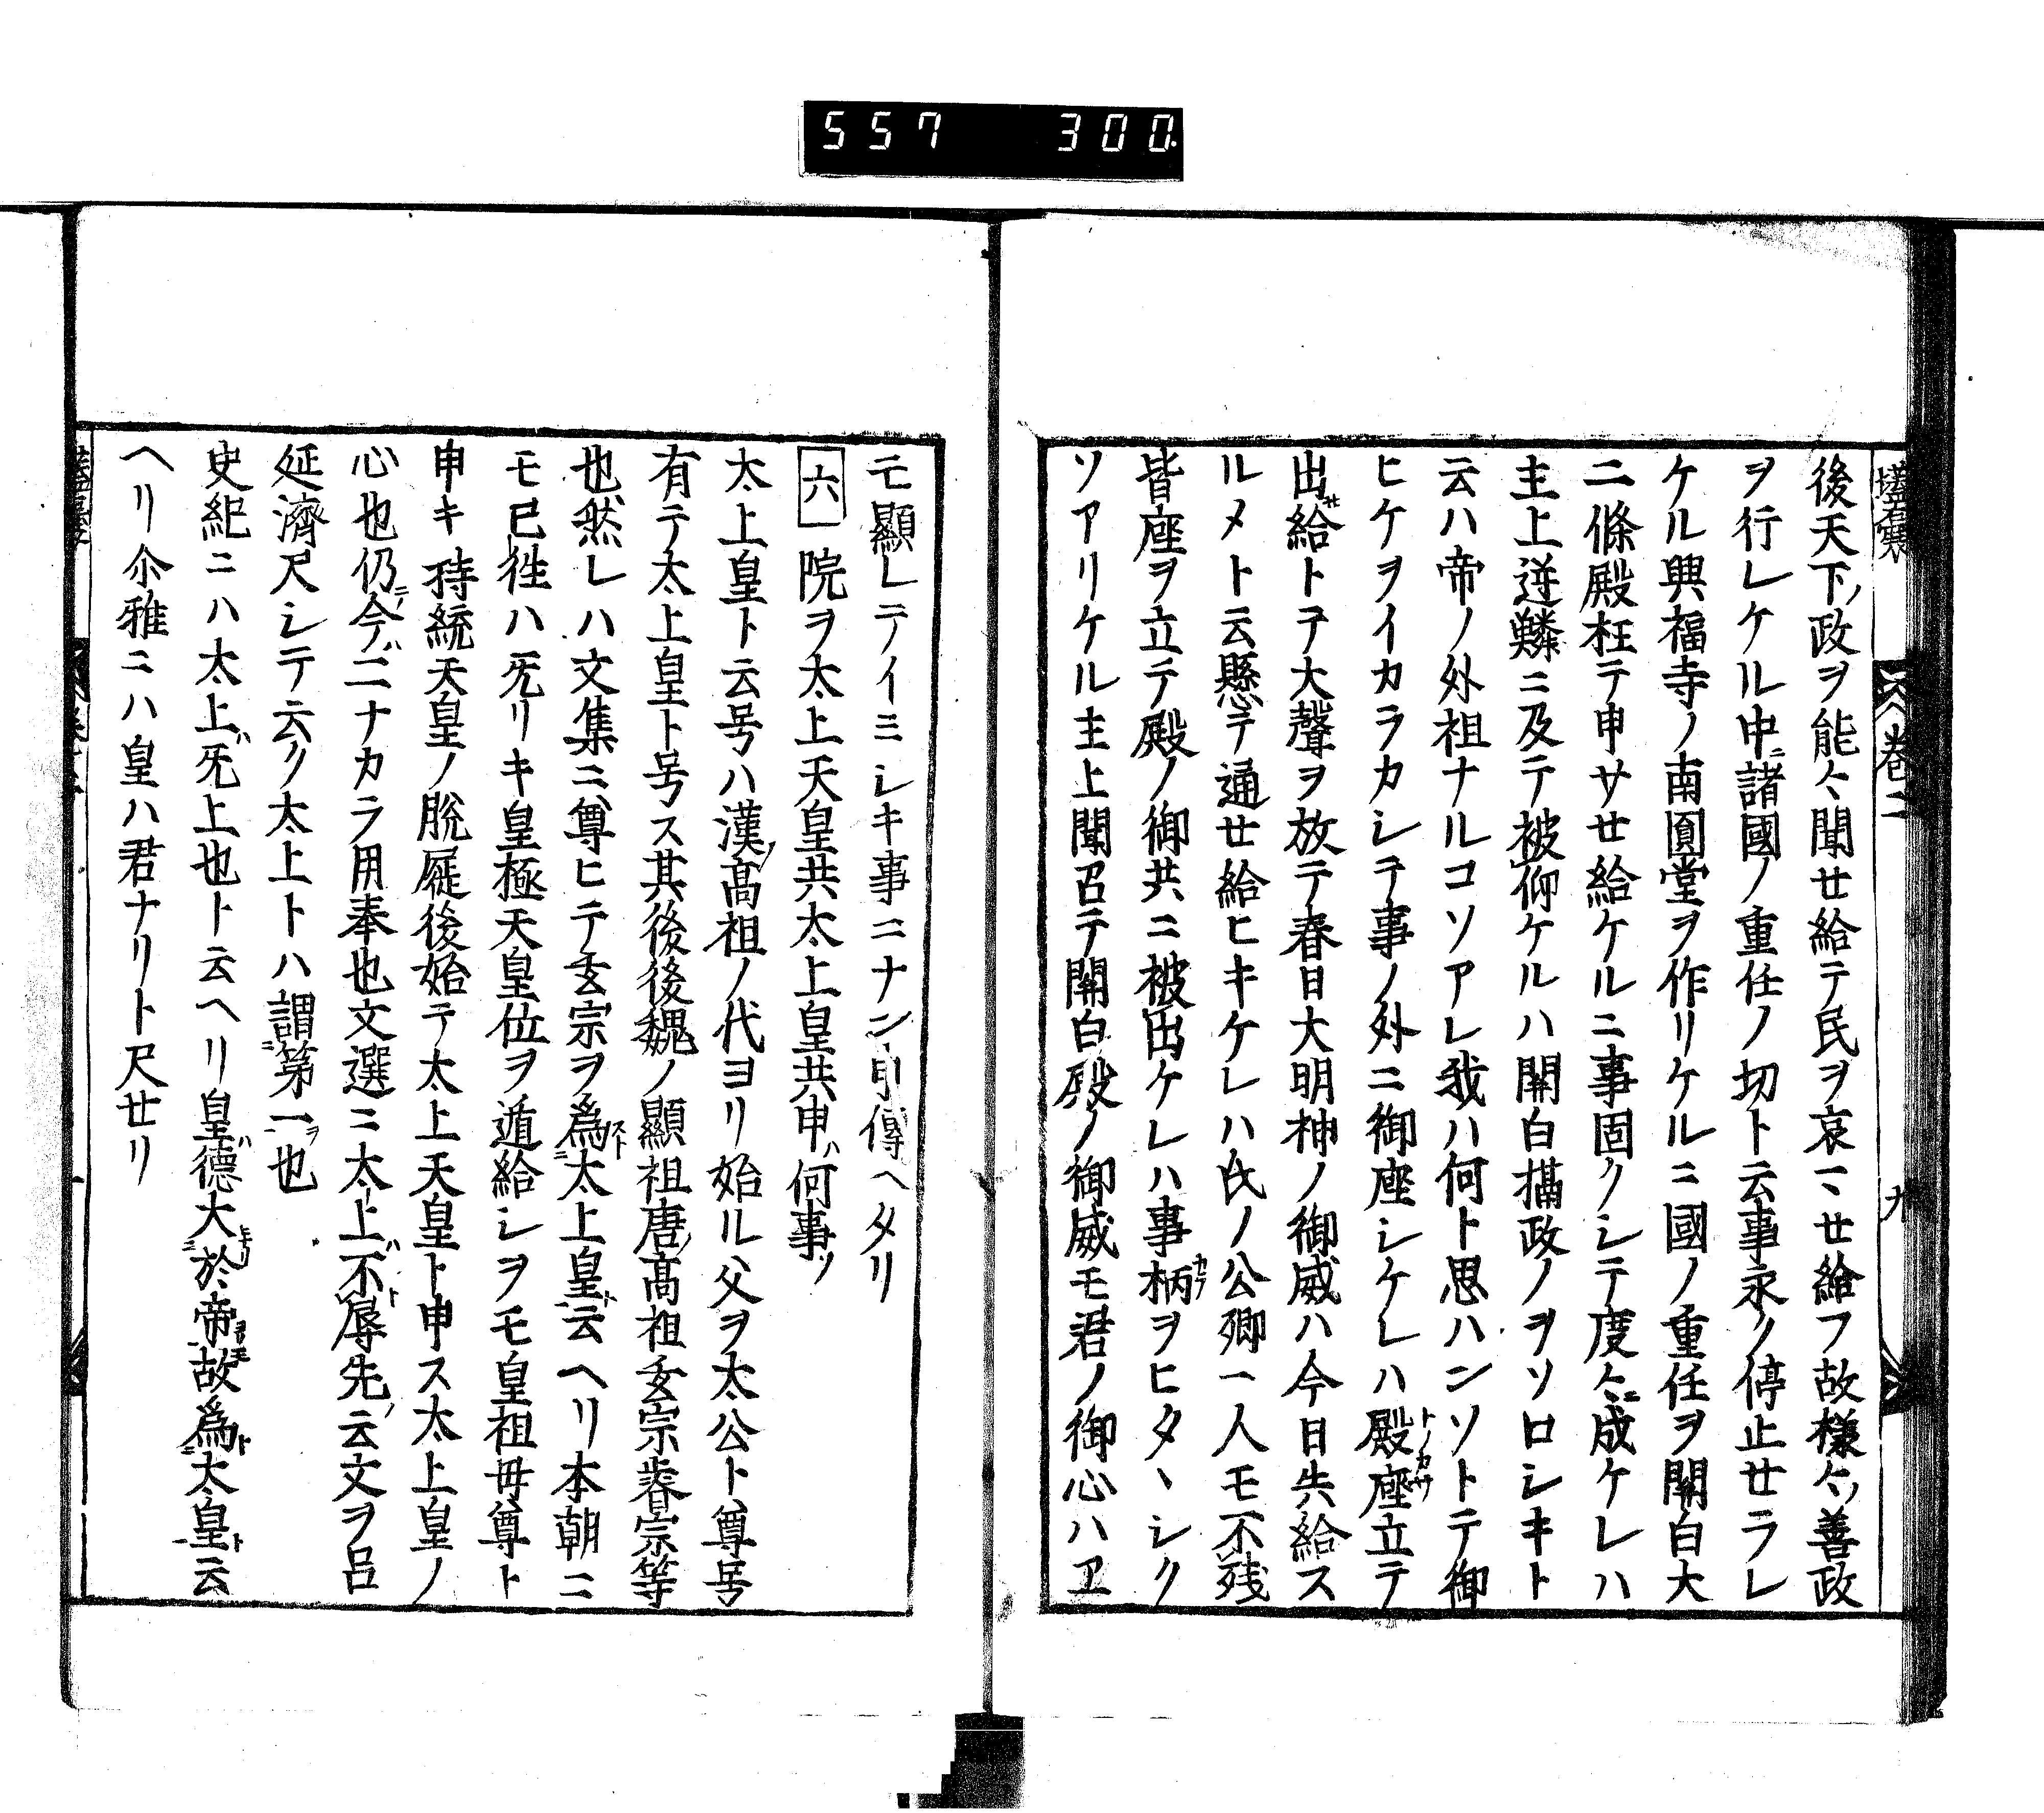 557 300
壒囊 巻二 九
後天下ノ政ヲ能々聞せ給テ民ヲ哀ミせ給フ故様々ノ善政
ヲ行レケル中ニ諸國ノ重任ノ切ト云事永ク停止せラレ
ケル興福寺ノ南圓堂ヲ作リケルニ國ノ重任ヲ關白大
二條殿枉テ申サせ給ケルニ事固クシテ度々ニ成ケレハ
主上逆鱗ニ及テ被仰ケルハ關白攝政ノヲソロシキト
云ハ帝ノ外祖ナルコソアレ我ハ何ト思ハンソトテ御
ヒケヲイカラカシテ事ノ外ニ御座シケレハ殿座立テ
出サせ給トテ大聲ヲ放テ春日大明神ノ御威ハ今日失給ス
ルメト云懸テ通せ給ヒキケレハ氏ノ公卿一人モ不残
皆座ヲ立テ殿ノ御共ニ被出ケレハ事柄ヲヒタヽシク
ソアリケル主上聞召テ關白殿ノ御威モ君ノ御心ハヱ
モ顯レテイミシキ事ニナン申傳ヘタリ
六 院ヲ太上天皇共太上皇共申ハ何事ソ
太上皇ト云号ハ漢ノ高祖ノ代ヨリ始ル父ヲ太公ト尊号
有テ太上皇ト号ス其後後魏ノ顯祖唐ノ高祖玄宗睿宗等
也然レハ文集ニ尊ヒテ玄宗ヲ爲太上皇ト云ヘリ本朝ニ
モ已往ハ旡リキ皇極天皇位ヲ遁給シヲモ皇祖母尊ト
申キ持統天皇ノ脱屣後始テ太上天皇ト申ス太上皇ノ
心也仍今ハ二ナカラ用奉也文選ニ太上ハ不辱先ト云文ヲ呂
延濟尺シテ云ク太上トハ謂第一ヲ也
史紀ニハ太上ハ旡上也ト云ヘリ皇ハ德大於帝ヨリモ故爲太皇ト云
ヘリ尒雅ニハ皇ハ君ナリト尺せリ